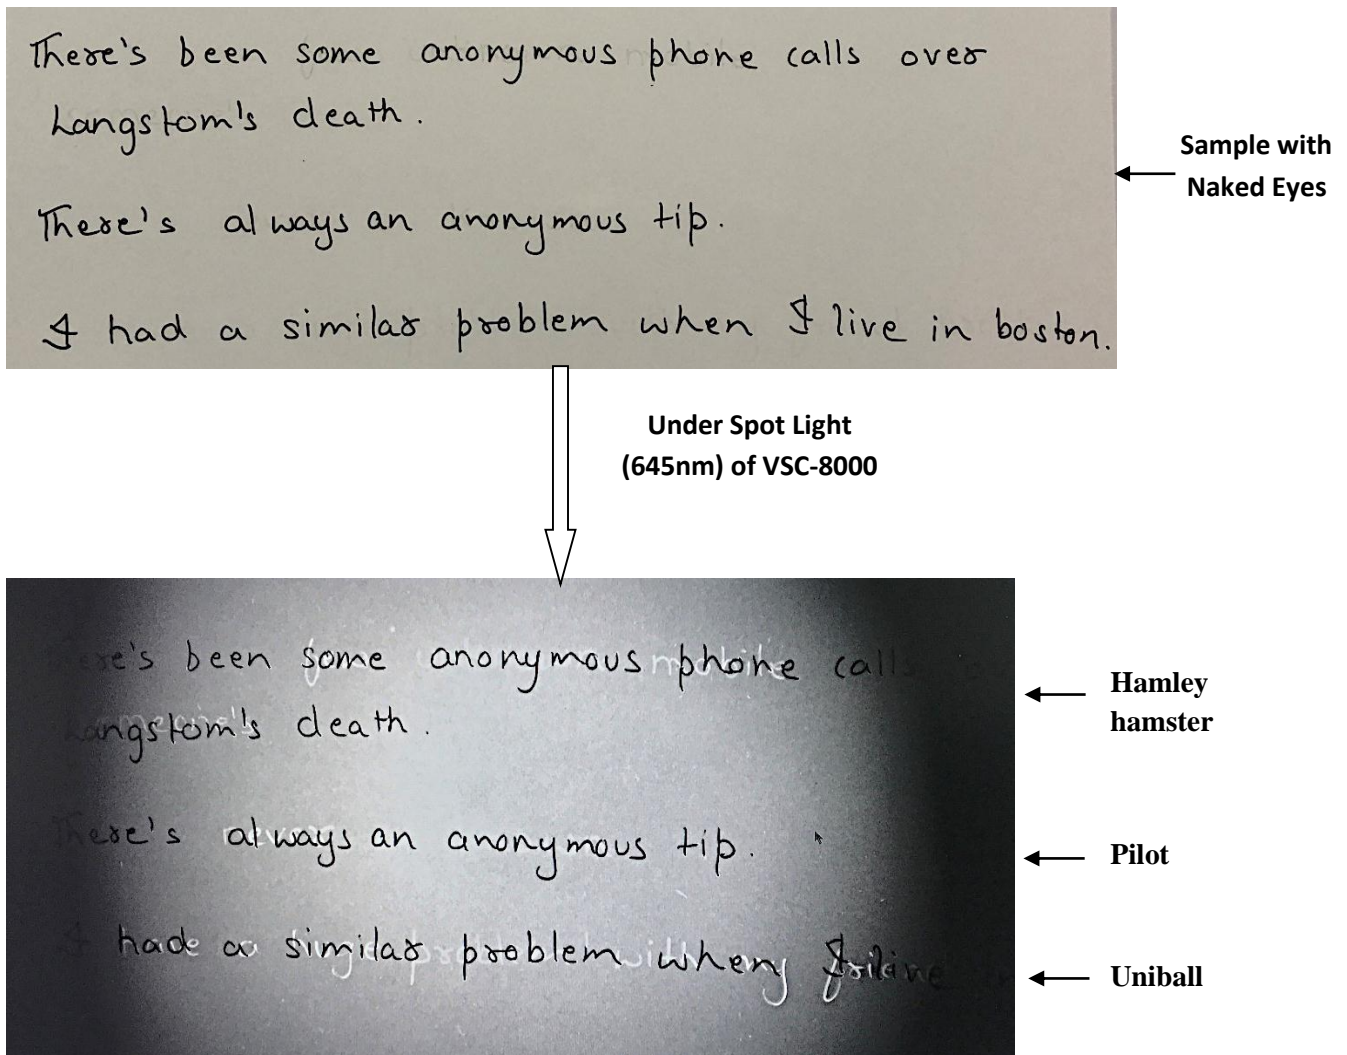 There's been some anonymous phone calls over
Langstom's death.
There's always an anonymous tip.
I had a similar problem when I live in boston.
Sample with
Naked Eyes
Under Spot Light
(645nm) of VSC-8000
ere's been some anonymous phone call
Langstom's death.
There's always an anonymous tip.
I had a similar problem when I live in
Hamley
hamster
Pilot
Uniball